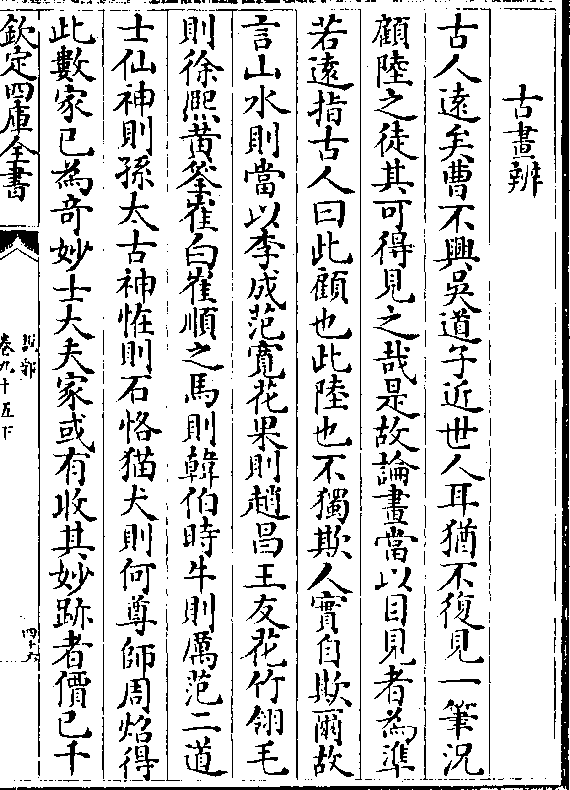 古畫辨
古人逺矣曹不興吳道子近世人耳猶不復見一筆況
顧陸之徒其可得見之哉是故論畫當以目見者為準
若逺指古人曰此顧也此陸也不獨欺人實自欺爾故
言山水則當以李成范寛花果則趙昌王友花竹翎毛
則徐熙黄筌崔白崔順之馬則韓伯時牛則厲范二道
士仙神則孫太古神怪則石恪猫犬則何尊師周炤得
此數家已為竒妙士大夫家或有收其妙跡者價已千
欽定四庫全書
說郛
卷九十五下
四十六